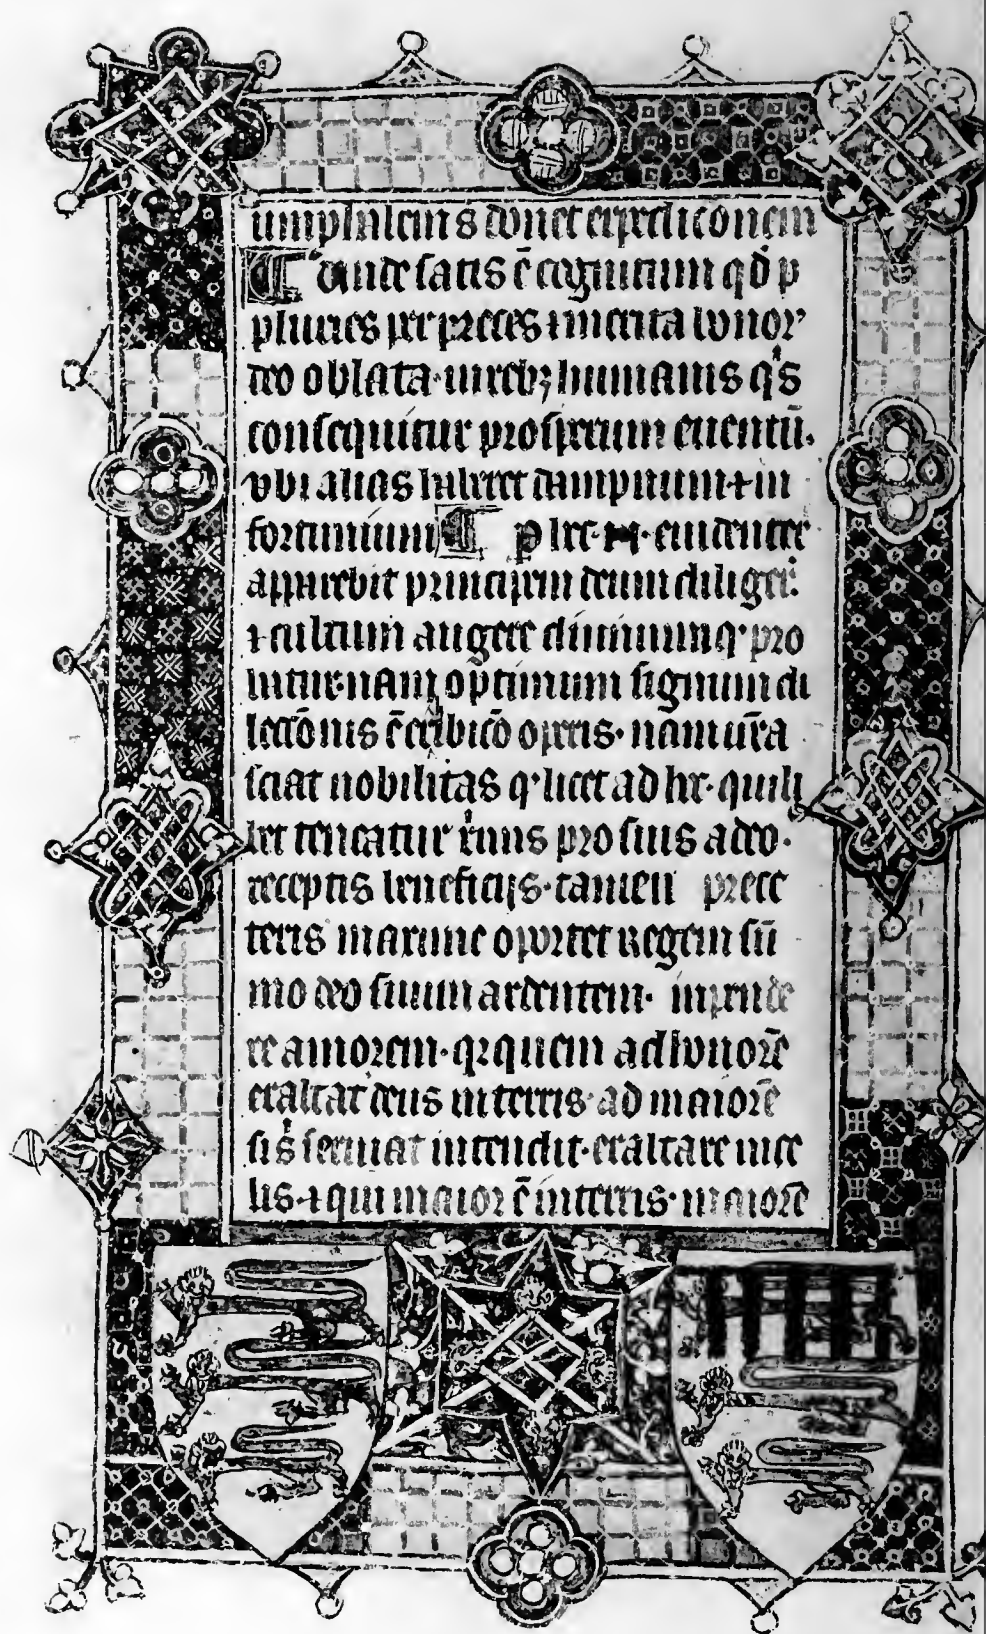 umphalem s donet expediconem
¶ Vnde satis ē cognitum qd̛ p
pluries per preces ⁊ merita bonoꝝ
deo oblata · in rebꝫ humanis qͥs
consequitur prosperum euentū ·
vbi alias haberet dampnum ⁊ in
fortunium ¶ p hec · N · euidenter
apparebit principem deum diliger̄
⁊ cultum augere diuinum q̛ pro
nam optimum signum di
lecc̄onis ē exͥbicō operis · nam ur̄a
sciat nobilitas q̛ licet ad hͦ · quili
bet teneatur pro suis a deo ·
receptis beneficijs · tamen pre ce
teris maxime oportet Regem sū
mo deo suum ardentem · inpende
re amorem · qꝛ quem ad honorē
exaltat deus in terris · ad maiorē
si sͥ seruiat intendit · exaltare in ce
lis · ⁊ qui maior ē in terris · maiorē